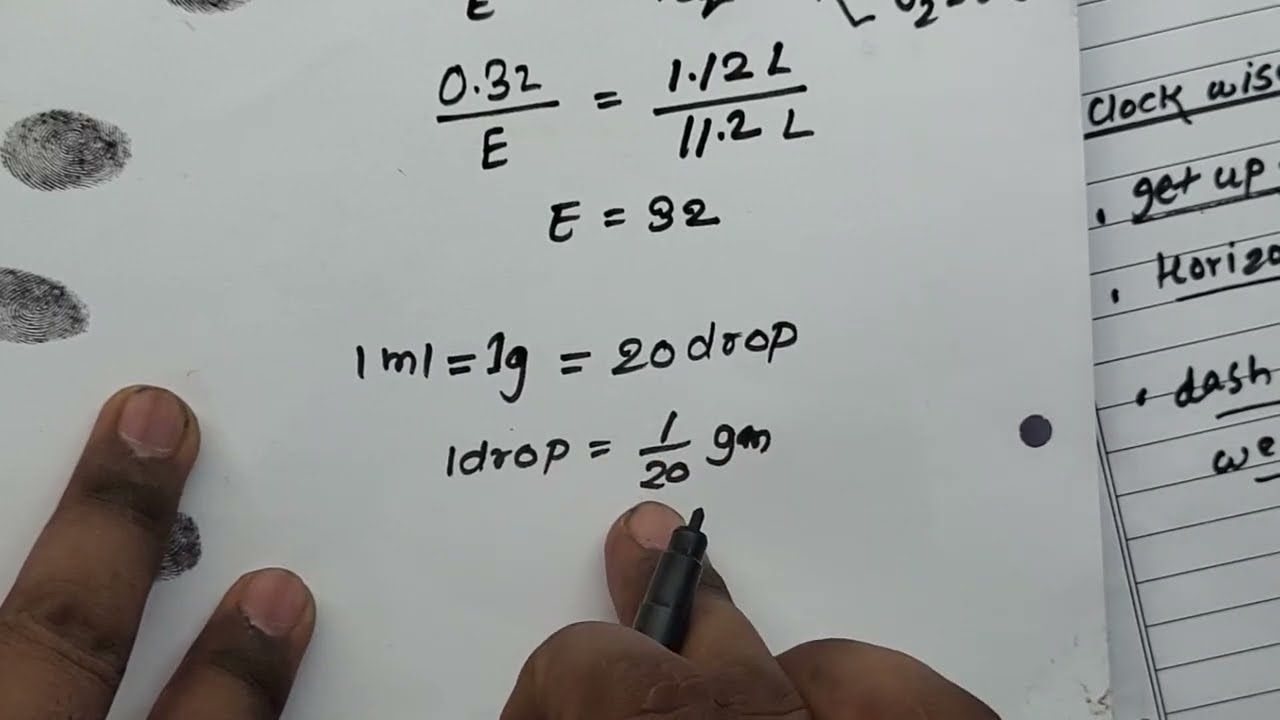 E
0.32 = 1.12 L
E 11.2 L
E = 32
1 ml = 1g = 20 drop
1 drop = 1/20 gm
Clock
get up
dash
we